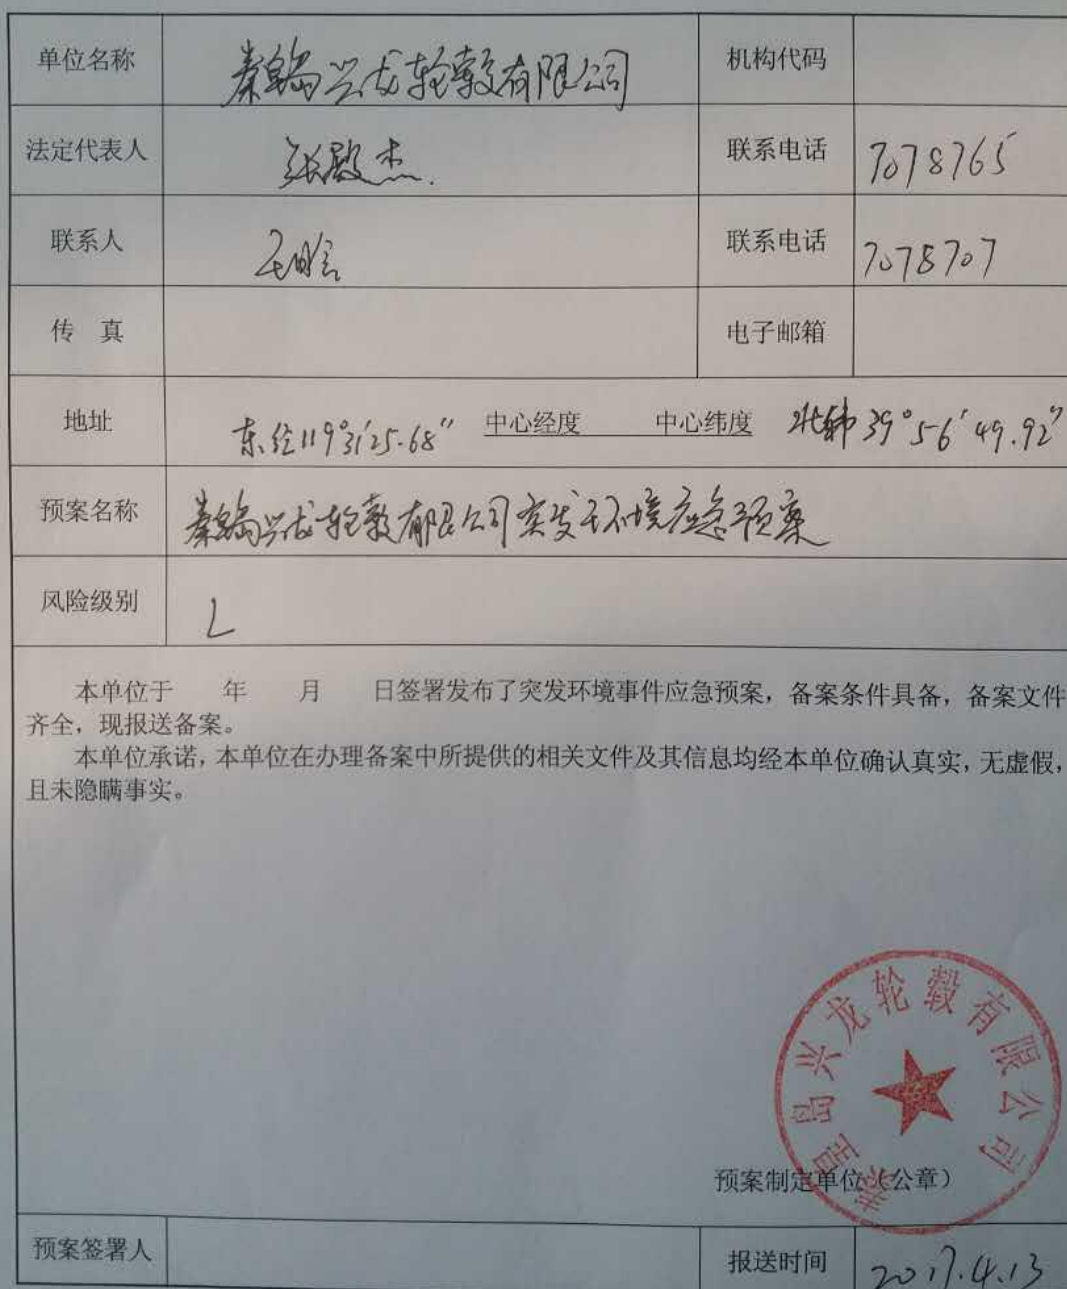 单位名称 秦皇岛兴龙轮毂有限公司 机构代码
法定代表人 张殿杰. 联系电话 7078765
联系人 联系电话 7078707
传 真 电子邮箱
地址 东经119°31′25.68″ 中心经度 中心纬度 北纬39°56′49.92″
预案名称 秦皇岛兴龙轮毂有限公司突发环境应急预案
风险级别 L
本单位于 年 月 日签署发布了突发环境事件应急预案，备案条件具备，备案文件
齐全，现报送备案。
本单位承诺，本单位在办理备案中所提供的相关文件及其信息均经本单位确认真实，无虚假，
且未隐瞒事实。
秦皇岛兴龙轮毂有限公司
预案制定单位（公章）
预案签署人 报送时间 2017.4.13